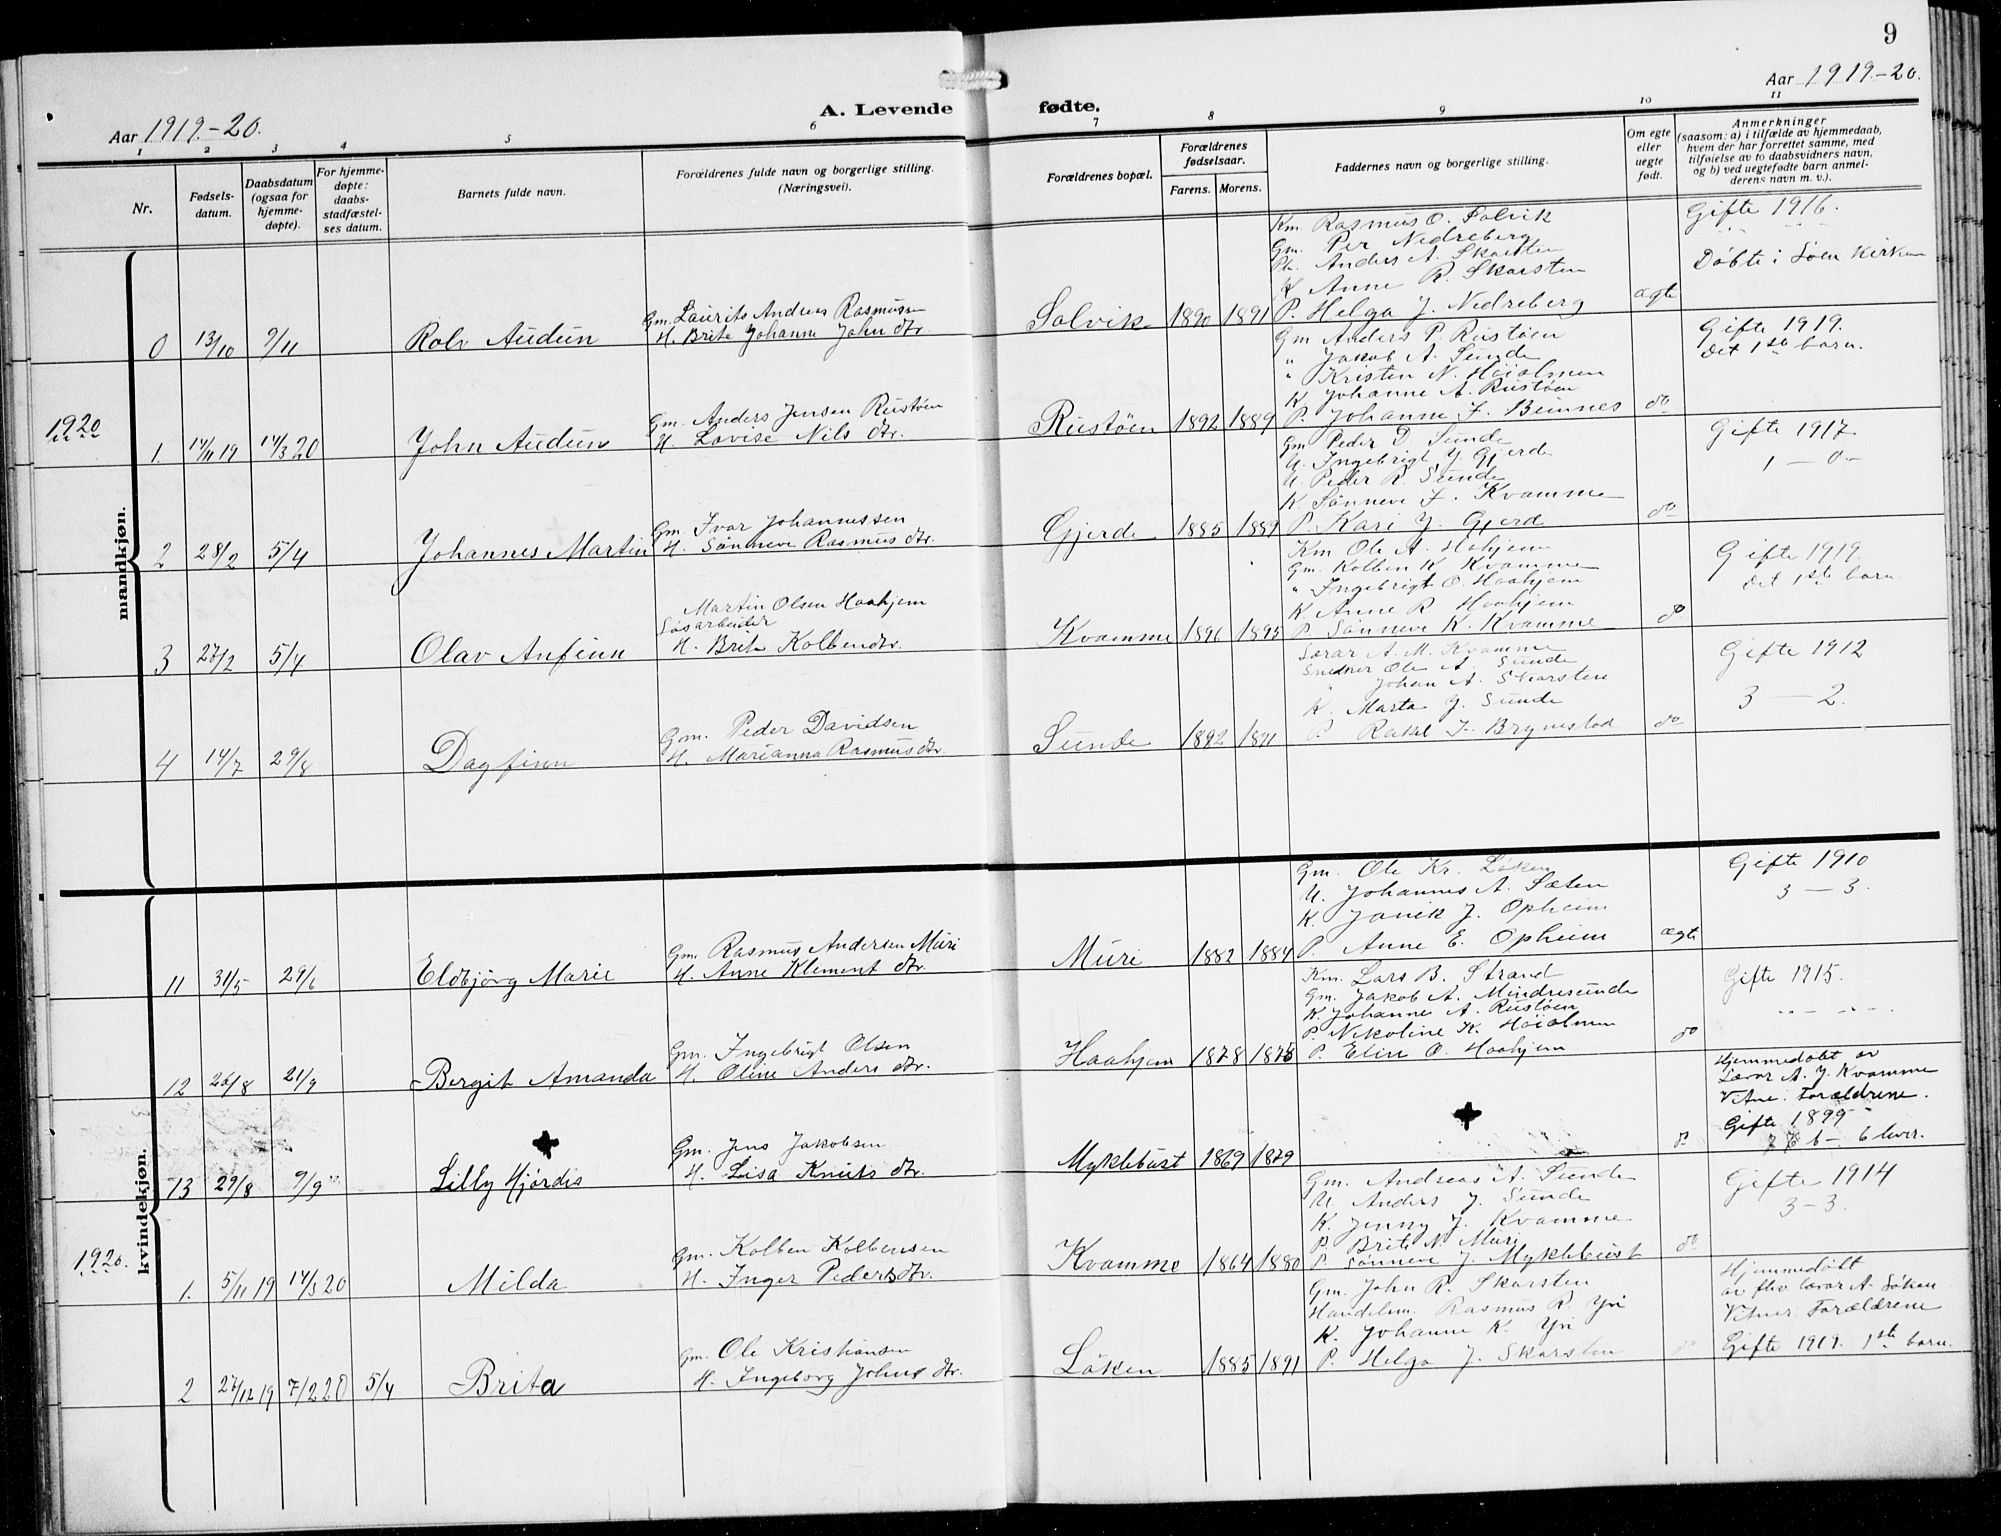 9
Aar 1919.-20.
A. Levende fødte.
Aar 1919.-20.
1 2 3 4 5 6 7 8 9 10 11
Nr.
Fødsels-
datum.
Daabsdatum
(ogsaa for
hjemme-
døpte).
For hjemme-
døpte:
daabs-
stadfæstel-
ses datum.
Barnets fulde navn.
Forældrenes fulde navn og borgerlige stilling.
(Næringsvei).
Forældrenes bopæl.
Forældrenes
fødselsaar.
Farens. Morens.
Faddernes navn og borgerlige stilling.
Om egte
eller
uegte
født.
Anmerkninger
(saasom: a) i tilfælde av hjemmedaab,
hvem der har forrettet samme, med
tilføielse av to daabsvidners navn,
og b) ved uegtefødte barn anmel-
derens navn m. v.).
mandkjøn.
0 13/10 9/11 Rolv Audun
Gm. Laurits Andreas Rasmussen
H. Brite Johanne John dtr.
Solvik 1890 1891
Km. Rasmus O. Solvik
Gm. Per Nedreberg
Pk. Anders A. Skarsten
K Anne R. Skarsten
P. Helga J. Nedreberg
ægte
Gifte 1916.
Døbte i Loen Kirken
1920
1. 14/11 19 14/3 20 John Audun
Gm. Anders Jensen Rustøen
H. Lovise Nils dtr.
Rustøen 1892 1889
Gm Anders P. Rustøen
" Jakob A. Sunde
" Kristen N. Høiolmen
K. Johanne A. Rustøen
P. Johanne J. Bennes
do
Gifte 1919.
Det 1ste barn.
2 28/2 5/4 Johannes Martin
Gm. Ivar Johannessen
H. Sønneve Rasmus dtr.
Gjerde 1885 1889
Gm Peder D. Sunde
U. Ingebrigt J. Gjerde
U. Peder R. Sunde
K Sønneve J. Kvamme
P. Kari J. Gjerd
do
Gifte 1917
1 — 0 —
3 27/2 5/4 Olav Anfinn
Martin Olsen Haahjem
Løsarbeider
H. Brite Kolbendtr.
Kvamme 1896 1895
Km Ole A. Haahjem
Gm. Kolben K Kvamme
" Ingebrigt O. Haahjem
K Anne R. Haahjem
P. Sønneve K. Kvamme
do
Gifte 1919.
Det 1ste barn.
4 14/7 29/8 Dagfinn
Gm. Peder Davidsen
H. Marianna Rasmus dtr.
Sunde 1892 1891
Lærar A. M. Kvamme
Snedker Ole A. Sunde
" Johan A. Skarsten
K. Marta J. Sunde
P. Rakel J. Brynestad
do
Gifte 1912
3 — 2.
kvindekjøn.
11 31/5 29/6 Eldbjörg Marie
Gm. Rasmus Andersen Muri
H. Anne Klement dtr.
Muri 1882 1884
Gm. Ole Kr. Løken
U. Johannes A. Sæten
K. Janik J. Opheim
P. Anne E. Opheim
ægte
Gifte 1910
3 — 3.
12 26/8 21/9 Bergit Amanda
Gm. Ingebrigt Olsen
H. Oline Anders dtr.
Haahjem 1878 1875
Km. Lars B. Strand
Gm. Jakob A. Mindresunde
K. Johanne A. Rustøen
P. Nikoline K. Høiolmen
P. Eline O. Haahjem
do
Gifte 1915.
13 29/8 9/9 Lilly Hjørdis
Gm. Jens Jakobsen
H. Lisa Knuts dtr.
Myklebust 1869 1879
do
Hjemmedøbt av
Lærar A. J. Kvamme
Vitne: Forældrene.
Gifte 1899
6 — 6 lever.
1920.
1. 5/11 19 14/3 20 Milda
Gm. Kolben Kolbensen
H. Inger Peders dtr.
Kvamme 1864 1880
Gm. Andreas A. Sunde
U. Anders J. Sunde
K. Jenny J. Kvamme
P. Brite N. Muri
P. Sønneve J. Myklebust
do
Gifte 1914
3 — 3.
2 27/12 19 7/2 20 5/4 Brita
Gm. Ole Kristiansen
H. Ingeborg Johns dtr.
Løken 1885 1891
Gm. John R. Skarsten
Handelsm. Rasmus R. Yri
K. Johanne K. Yri
P. Helga J. Skarsten
do
Hjemmedøbt
av fhv. lærar A. Løken
Vitner: Forældrene
Gifte 1919. 1ste barn.